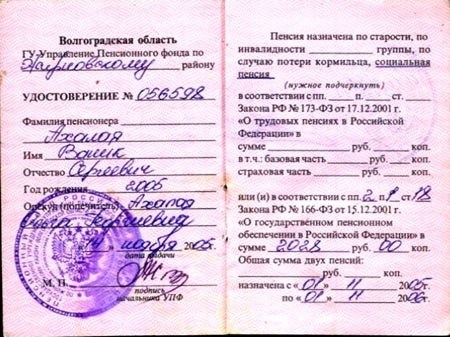 Волгоградская область
ГУ-Управление Пенсионного фонда по
району
УДОСТОВЕРЕНИЕ № 056598
Фамилия пенсионера
Ахалая
Имя Ваник
Отчество Сергеевич
Год рождения 2005
Опекун (попечитель) Ахалая
ноября 2005
дата выдачи
М. П.
подпись
начальника УПФ
Пенсия назначена по старости, по
инвалидности группы, по
случаю потери кормильца, социальная
пенсия
(нужное подчеркнуть)
в соответствии с пп. п. ст.
Закона РФ № 173-ФЗ от 17.12.2001 г.
«О трудовых пенсиях в Российской
Федерации» в
сумме руб. коп.
в т.ч.: базовая часть руб. коп.
страховая часть руб. коп.
или (и) в соответствии с пп. ст 18
Закона РФ № 166-ФЗ от 15.12.2001 г.
«О государственном пенсионном
обеспечении в Российской Федерации» в
сумме 2028 руб. 00 коп.
Общая сумма двух пенсий:
руб. коп.
назначена с «01» 11 2005г
по «01» 11 2006г.